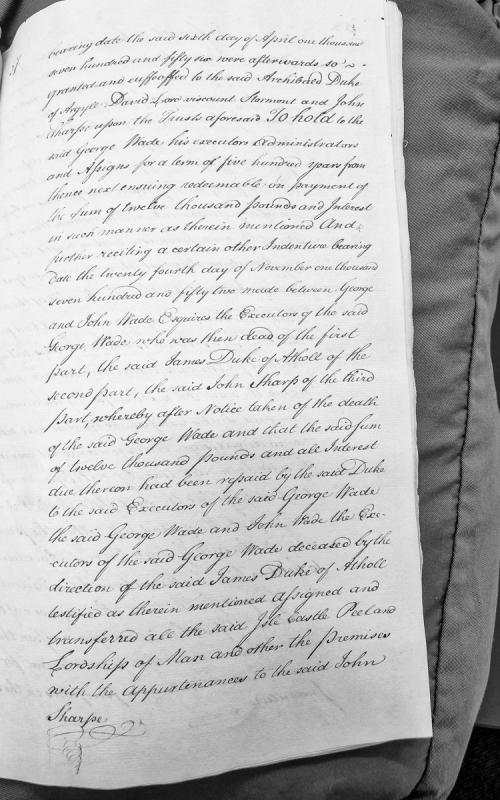 bearing date the said sixth day of April one thousand
seven hundred and fifty were afterwards so
granted and enffeoffed to the said Archibald Duke
of Argyle David Lord viscount Stormont and John
Sharpe upon the Trusts aforesaid To hold to the
said George Wade his executors Administrators
and Assigns for a term of five hundred years from
thence next ensuing redeemable on payment of
the sum of twelve thousand pounds and Interest
in such manner as therein mentioned And
further reciting a certain other Indenture bearing
Date the twenty fourth day of November one thousand
seven hundred and fifty two made between George
and John Wade Esquires the Executors of the said
George Wade who was then dead of the first
part, the said James Duke of Atholl of the
second part, the said John Sharp of the third
part, whereby after Notice taken of the death
of the said George Wade and that the said sum
of twelve thousand pounds and all Interest
due thereon had been repaid by the said Duke
to the said Executors of the said George Wade
the said George Wade and John Wade the Exe-
cutors of the said George Wade deceased by the
direction of the said James Duke of Atholl
testified as therein mentioned assigned and
transferred all the said Isle Castle Peel and
Lordships of Man and other the premises
with the appurtenances to the said John
Sharpe